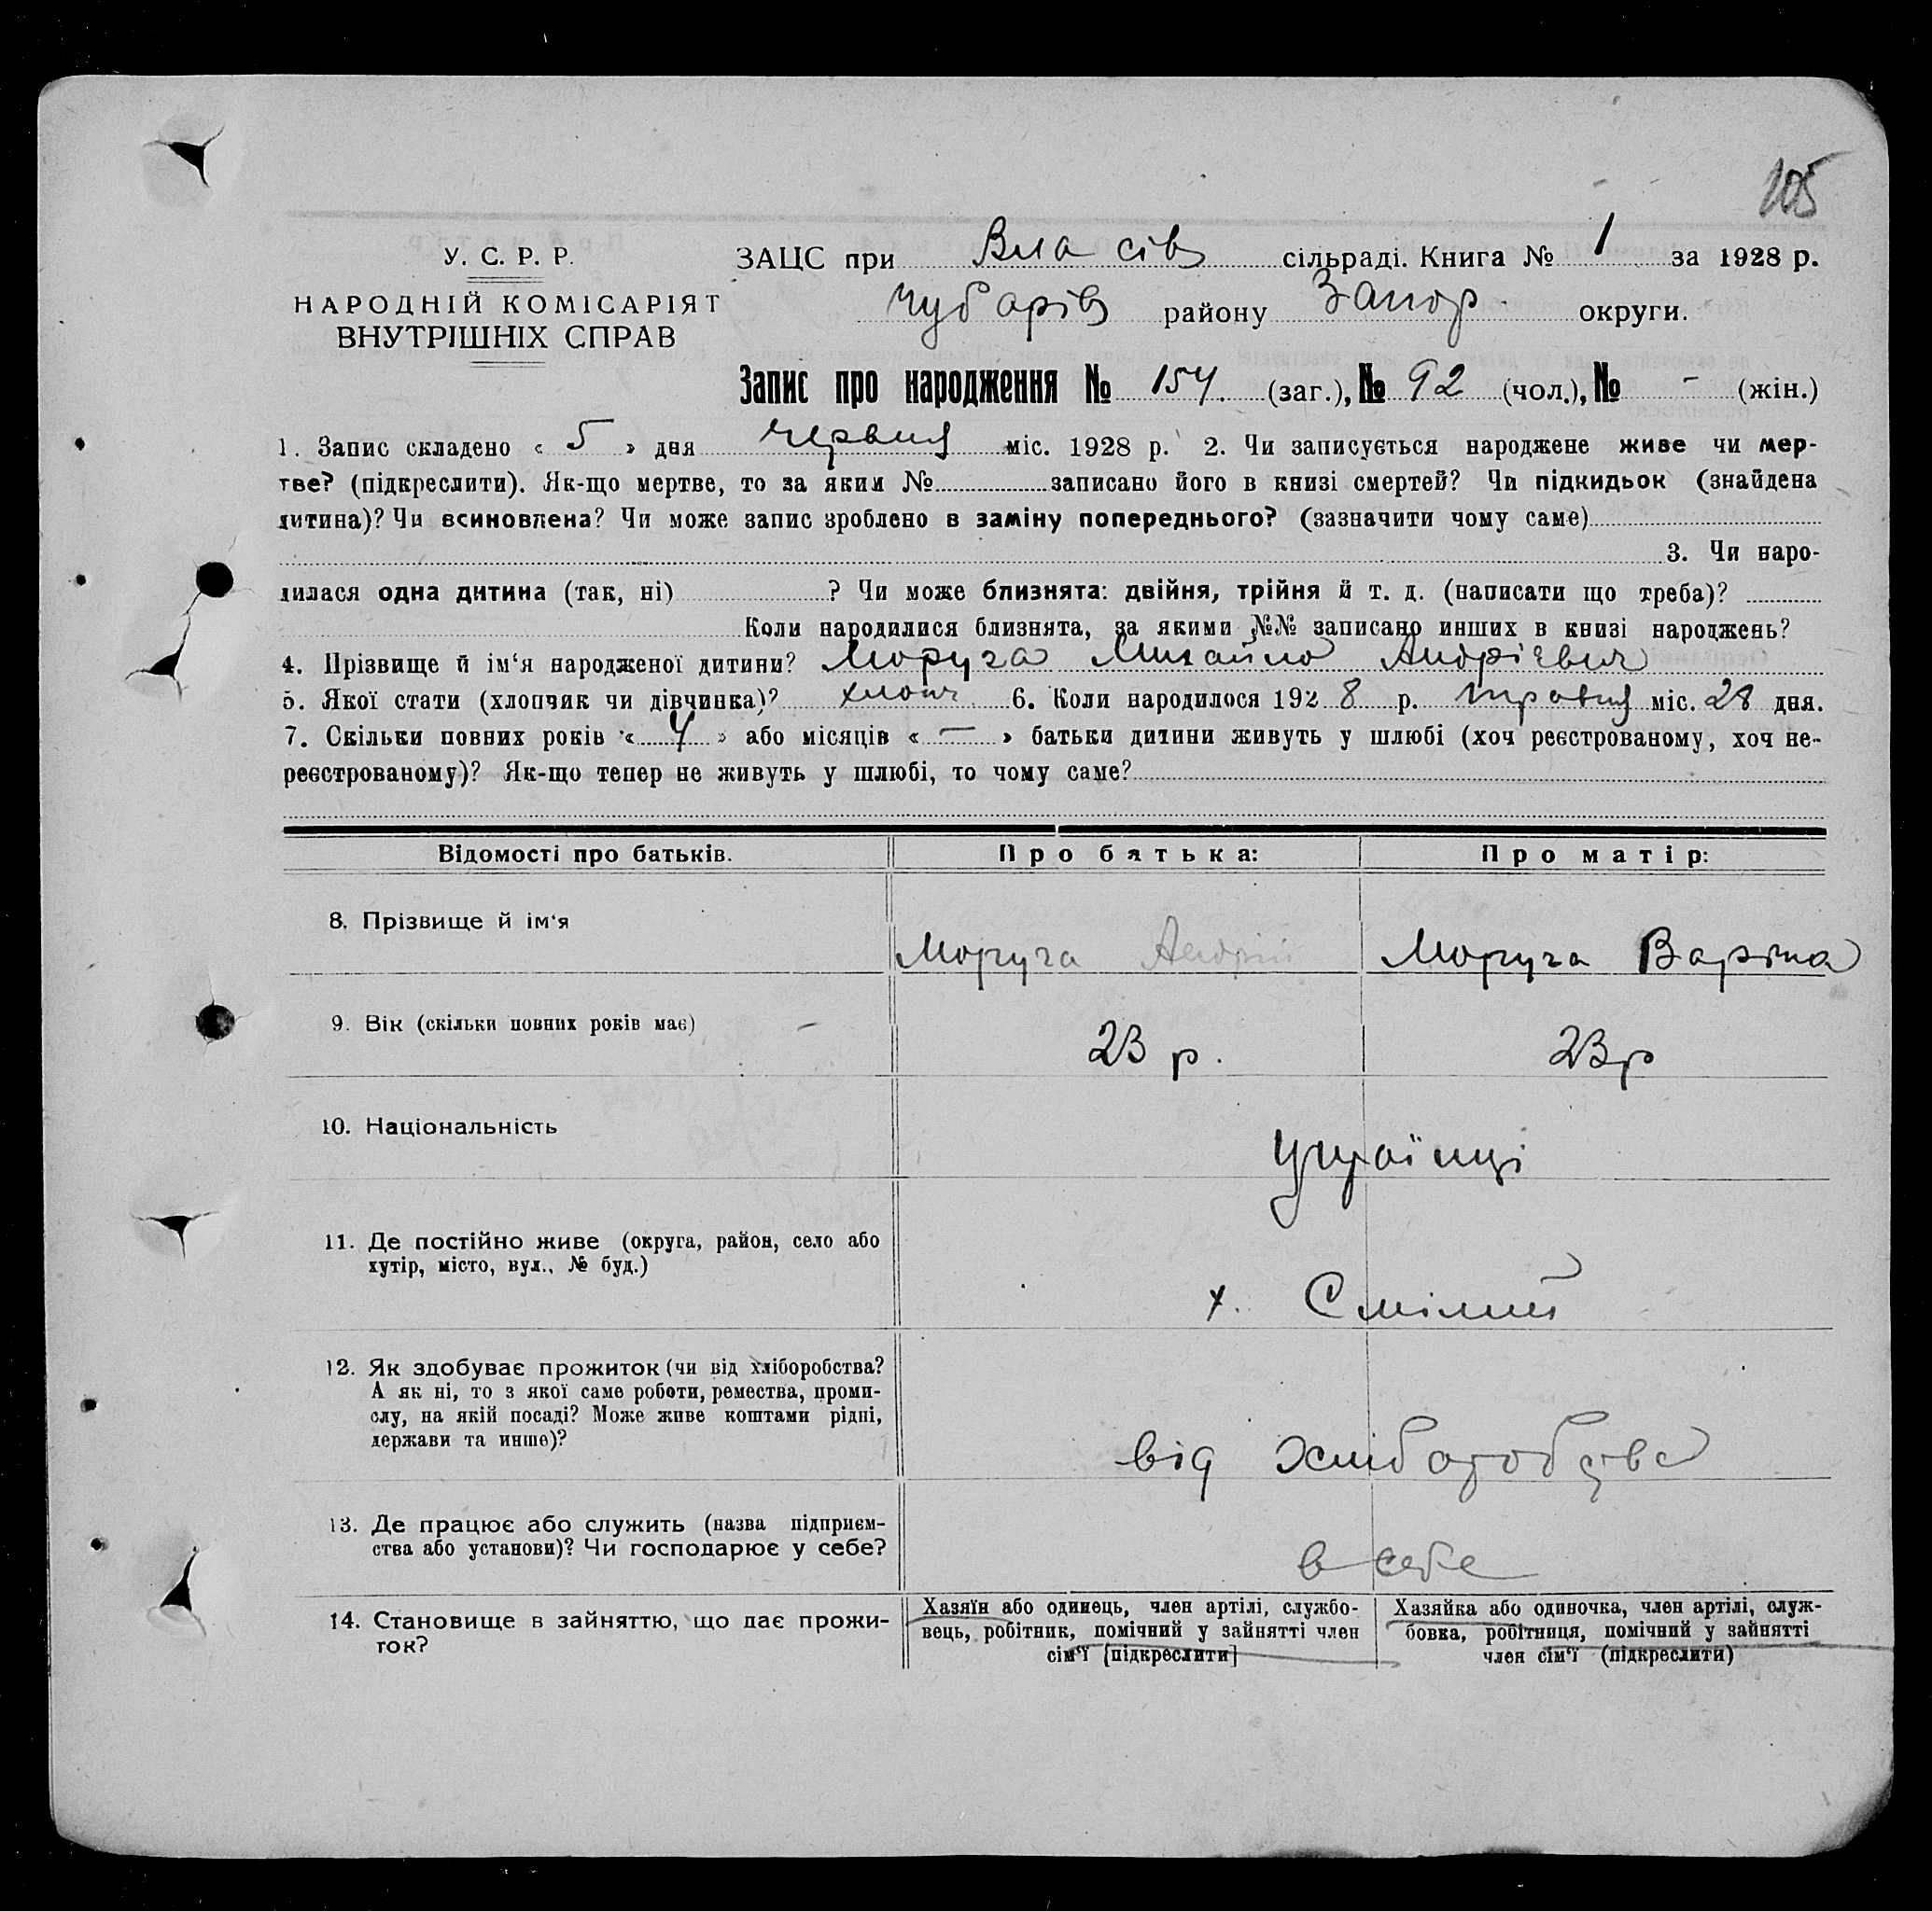 105
У. С. Р. Р.
НАРОДНІЙ КОМІСАРІЯТ
ВНУТРІШНІХ СПРАВ
ЗАЦС при Власів сільраді. Книга № 1 за 1928 р.
Чубарів району Запор. округи.
Запис про народження № 154. (заг.), № 92 (чол.), № - (жін.)
1. Запис складено « 5 » дня червня міс. 1928 р. 2. Чи записується народжене живе чи мер-
тве? (підкреслити). Як-що мертве, то за яким № записано його в книзі смертей? Чи підкидьок (знайдена
дитина)? Чи всиновлена? Чи може запис зроблено в заміну попереднього? (зазначити чому саме)
3. Чи наро-
дилася одна дитина (так, ні) ? Чи може близнята: двійня, трійня й т. д. (написати що треба)?
Коли народилися близнята, за якими №№ записано инших в книзі народжень?
4. Прізвище й ім‘я народженої дитини? Моруга Михайло Андрієвич
5. Якої стати (хлопчик чи дівчинка)? хлопч. 6. Коли народилося 192 8 р. травня міс. 28 дня.
7. Скільки повних років « 4 » або місяців « — » батьки дитини живуть у шлюбі (хоч реєстрованому, хоч не-
реєстрованому)? Як-що тепер не живуть у шлюбі, то чому саме?
Відомості про батьків. Про батька: Про матір:
8. Прізвище й ім‘я Моруга Андрій Моруга Варвка
9. Вік (скільки повних років має) 23 р. 23 р
10. Національність Українці
11. Де постійно живе (округа, район, село або
хутір, місто, вул., № буд.)
х. Смілий
12. Як здобуває прожиток (чи від хліборобства?
А як ні, то з якої саме роботи, ремества, проми-
слу, на якій посаді? Може живе коштами рідні,
держави та инше)?
від хліборобства
13. Де працює або служить (назва підприєм-
ства або установи)? Чи господарює у себе?
в себе
14. Становище в зайняттю, що дає прожи-
ток?
Хазяїн або одинець, член артілі, службо-
вець, робітник, помічний у зайнятті член
сім‘ї [підкреслити]
Хазяйка або одиночка, член артілі, служ-
бовка, робітниця, помічний у зайнятті
член сім‘ї (підкреслити)